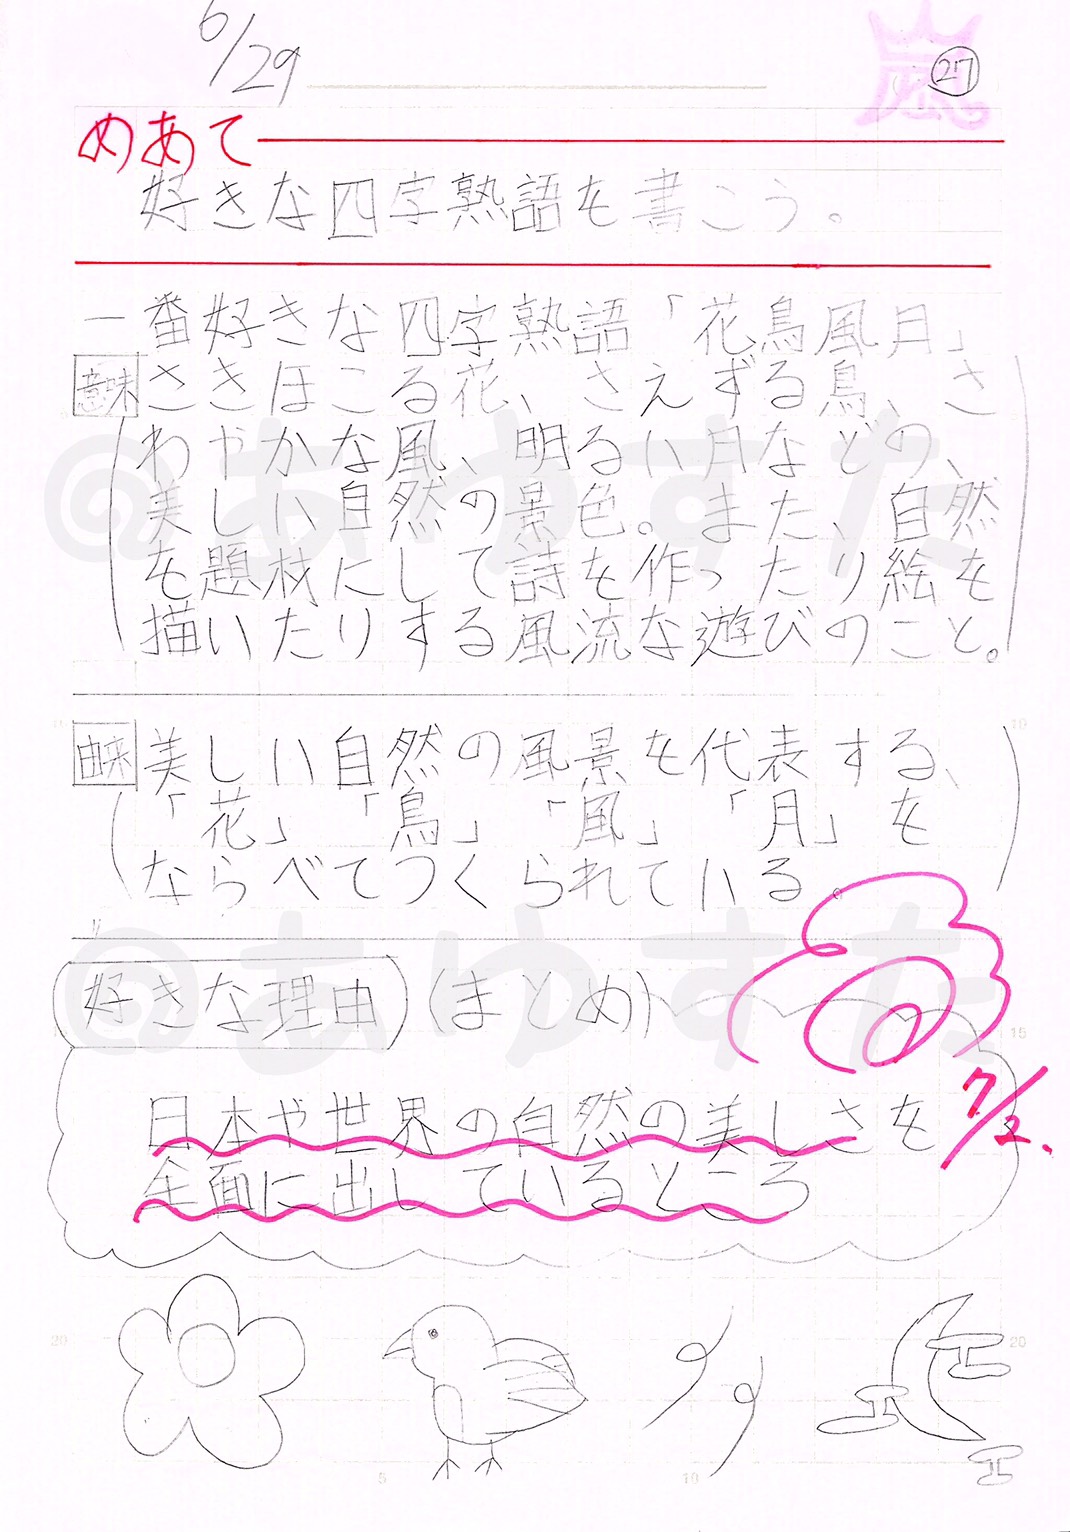 6/29
嵐
27
めあて
好きな四字熟語を書こう。
一番好きな四字熟語「花鳥風月」
意味 さきほこる花、さえずる鳥、さ
わやかな風、明るい月などの、
美しい自然の景色。また、自然
を題材にして詩を作ったり絵を
描いたりする風流な遊びのこと。
由来 美しい自然の風景を代表する、
「花」「鳥」「風」「月」を
ならべてつくられている。
好きな理由 (まとめ)
日本や世界の自然の美しさを
全面に出しているところ
7/2.
@あゆすた
@あゆすた
10
15
20
20
5
10